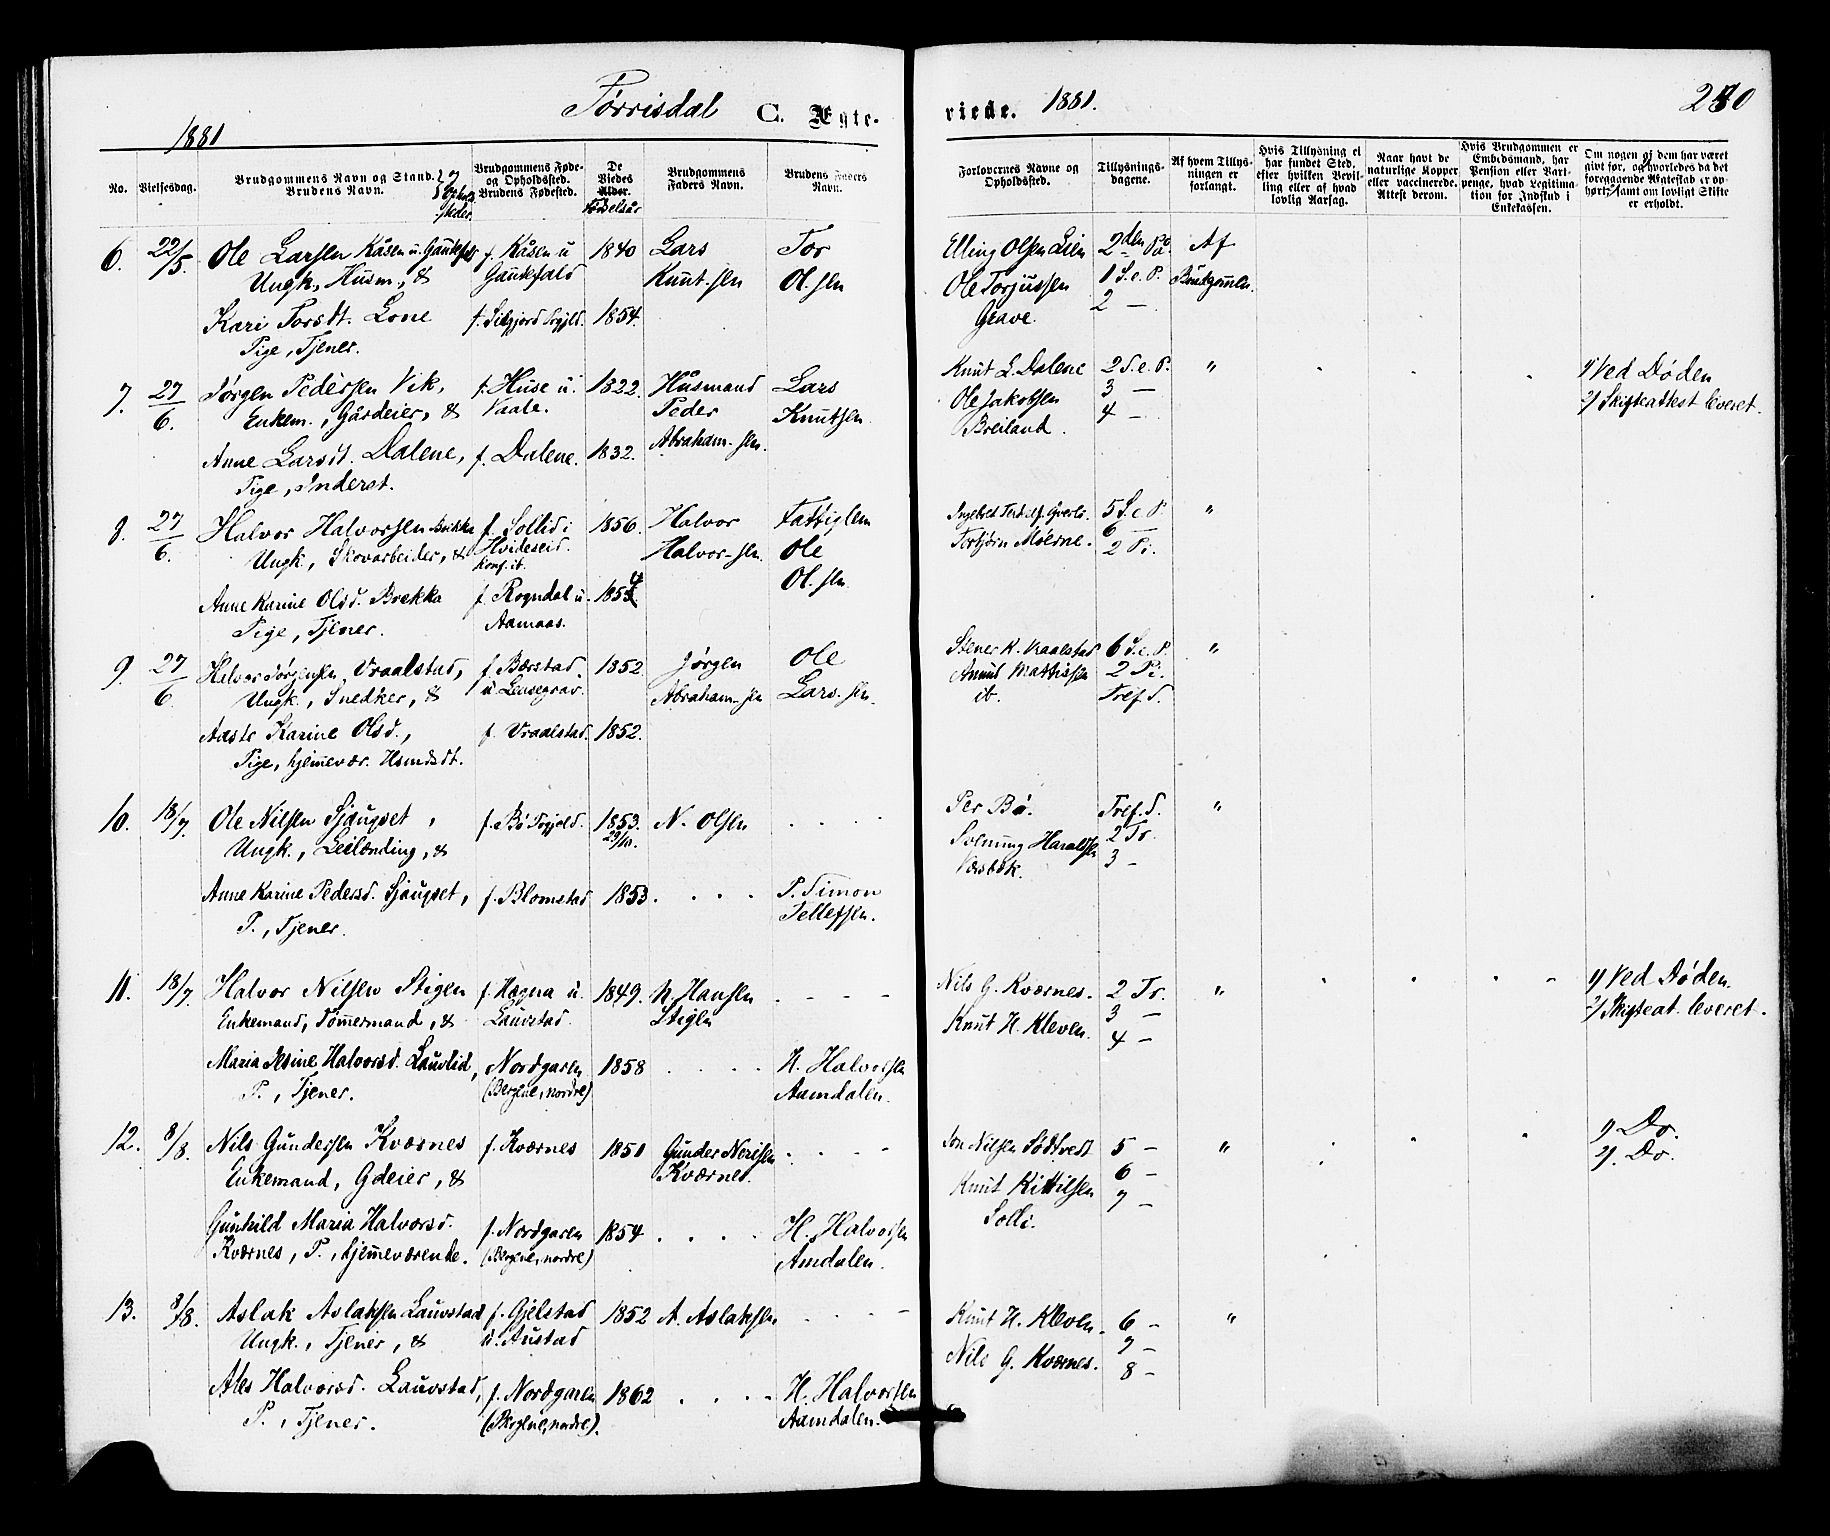 Tørrisdal C. Ægte-
1881
No.
Vielsesdag.
Brudgommens Navn og Stand.
Brudens Navn.
Brudgommens Føde-
og Opholdssted.
Brudens Fødested.
De
Viedes
Alder.
Fødselsår
Brudgommens
Faders Navn.
Brudens Faders
Navn.
6. 22/5. Ole Larsen Kåsen u. Gaukefald f. Kåsen u 1840 Lars Tor
Ungk., Husm., & Gaukefald Knut-sen Ol.sen
Kari Torsdt. Lone f. Silgjord Prgjld. 1854.
Pige, Tjener.
7. 27/6. Jørgen Pedersen Vik, f. Huse u. 1822. Husmand Lars
Enkem., Gårdeier, & Vaale. Peder Knutsen
Abraham-sen.
Anne Larsdt. Dalene, f. Dalene. 1832.
Pige, Inderst.
8. 27/6. Halvor Halvorsen Brekka f. Sollid i 1856. Halvor Fattiglem
Ungk., Skovarbeider, & Hvideseid. Halvor-sen. Ole
konf. ib. Ol.sen
Anne Karine Olsd. Brekka f. Rogndal u. 1854
Pige, Tjener. Aamaas.
9. 27/6. Halvor Jørgensen Vraalstad, f. Bærstad. 1852. Jørgen Ole
Ungk., Snedker, & u. Lensegrav. Abraham-sen Lars.sen.
Aaste Karine Olsd., f. Vraalstad. 1852.
Pige, hjemmevær. Hsmdsdt.
10. 18/7. Ole Nilsen Sjaugset, f. Bø Prgjeld. 1853. N. Olsen
Ungk., Leilænding, & 29/10.
Anne Karine Pedersd. Sjaugset, f. Blomstad 1853. P. Simon
P., Tjener. Tellefsen.
11. 18/7. Halvor Nilsen Stigen f. Høgna u. 1849. N. Hansen
Enkemand, Tømmermand, & Lauvstad. Stigen
Maria Jesine Halvorsd. Lauvlid, Nordgaren 1858 H. Halvorsen
P., Tjener. (Bergene, nordre) Aamdalen.
12. 8/8. Nils Gundersen Kværnes f. Kværnes 1851 Gunder Nerisen
Enkemand, Gdeier, & Kværnes.
Gunhild Maria Halvorsd. f. Nordgaren 1854 H. Halvorsen
Kværnes, P., hjemmeværende. (Bergene, nordre) Amdalen.
13. 8/8. Aslak Aslaksen Lauvstad f. Gjelstad 1852 A. Aslaksen
Ungk., Tjener, & u. Austad
Ales Halvorsd. Lauvstad, f. Nordgaren 1862 H. Halvorsen
P., Tjener. (Bergene, nordre). Aamdalen.
viede. 1881. 280
Forlovernes Navne og
Opholdssted.
Tillysnings-
dagene.
Af hvem Tillys-
ningen er
forlangt.
Hvis Tillysning ei
har fundet Sted,
efter hvilken Bevil-
ling eller af hvad
lovlig Aarsag.
Naar havt de
naturlige Kopper
eller vaccinerede.
Attest derom.
Hvis Brudgommen er
Embedsmand, har
Pension eller Vart-
penge, hvad Legitima-
tion for Indskud i
Enkekassen.
Om nogen af dem har været
givt før, og hvorledes da det
foregaaende Ægteskab er op-
hørt, samt om lovligt Skifte
er erholdt.
Elling Olsen Lien 2den På. Af
Ole Torjussen 1 S.e.P. Brudgommen.
Grave. 2 —
Knut L. Dalene 2 S.e.P. " 1/ Ved Døden
Ole Jakobsen 3 — 2/ Skifteattest leveret.
Breiland. 4 —
5 S.e.P. "
Torbjørn Moerne. 6 —
2 Pi.
Stener K. Vraalstad 6 S.e.P. "
Amund Mattissen 2 Pi.
ib. Tref.d.
Per Bø. Tref.d. "
Solmung Haraldsen 2 Tr.
3 —
Nils G. Kværnes. 2 Tr. " 1/ Ved Døden.
Knut H. Kleven. 3 — 2/ Skifteat. leveret.
4 —
Jon Nilsen Sødtvedt 5 — " 1/ Do.
6 — 2/. Do.
Knut Kittilsen 7 —
Solli.
Knut H. Kleven. 6 — "
7 —
Nils G. Kværnes. 8 —